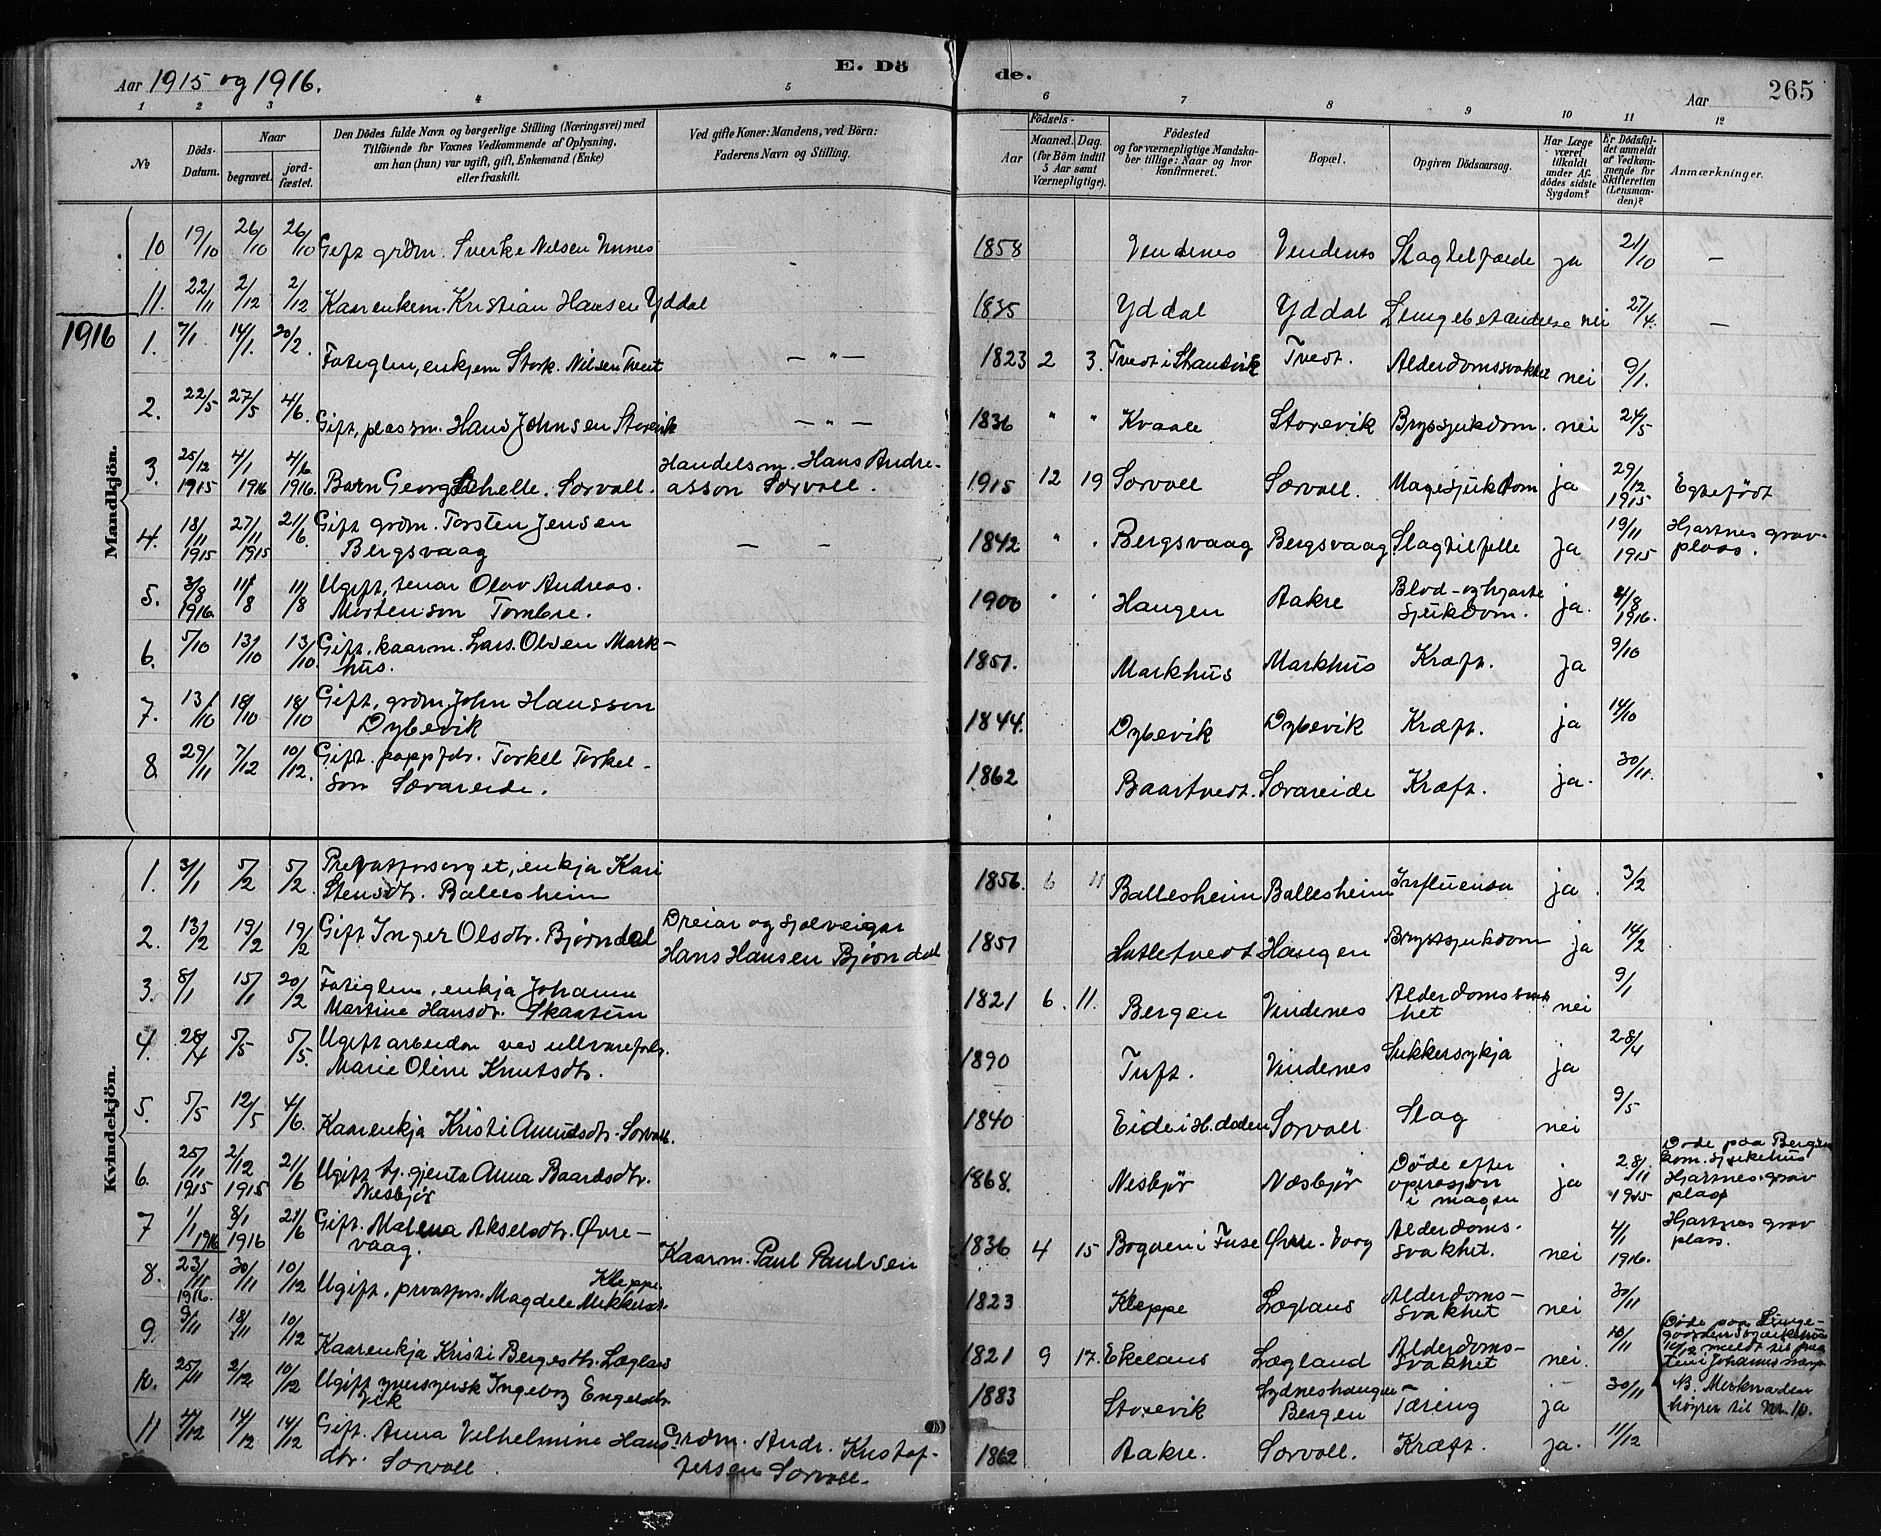 Aar 1915 og 1916.
E. Dö
de.
Aar
265
1 2 3 4 5 6 7 8 9 10 11 12
No
Döds-
Datum.
Naar
begravet.
jord-
fæstet.
Den Dödes fulde Navn og borgerlige Stilling (Næringsvei) med
Tilföiende for Voxnes Vedkommende af Oplysning,
om han (hun) var ugift, gift, Enkemand (Enke)
eller fraskilt.
Ved gifte Koner: Mandens, ved Börn:
Faderens Navn og Stilling.
Födsels-
Aar
Maaned. Dag.
(for Börn indtil
5 Aar samt
Værnepligtige).
Födested
og for værnepligtige Mandska-
ber tillige: Naar og hvor
konfirmeret.
Bopæl.
Opgiven Dödsaarsag.
Har Læge
været
tilkaldt
under Af-
dödes sidste
Sygdom?
Er Dödsfal-
det anmeldt
af Vedkom-
mende for
Skifteretten
(Lensman-
den)?
Anmærkninger.
Mandkjön.
10 19/10 26/10 26/10 Gift grdm. Sverke Nilsen Unnes 1858 Vendenes Vendenes Slagtilfælde ja 21/10 —
11. 22/11 2/12 2/12 Kaarenkem. Kristian Hansen Yddal 1835 Yddal Yddal Lungebetændelse nei 27/4. —
1916
1. 7/1 14/1. 20/2. Fatiglem, enkjem Stork. Nilsen Tveit — " — 1823 2 3. Tvedt i Strandvik Tvedt. Alderdomssvakhet nei 9/1.
2. 22/5 27/5 4/6. Gift, plassm. Hans Johnsen Storevik — " — 1836 " " Kvaale Storevik Brystsjukdom. nei 24/5
3. 25/12 1915 4/1 1916 4/6 1916. Barn Georg Schelle. Sørvoll. Handelsm. Hans Andre-
asson Sørvoll. 1915 12 19 Sørvoll Sørvoll. Magesjukdom ja 29/12 1915 Egtefødt
4. 18/11 1915 27/11 1915 21/6. Gift grdm. Torsten Jensen
Bergsvaag — — 1842 " . Bergsvaag Bergsvaag Slagtilfelle ja 19/11 1915 Hjartnes grav-
plass.
5. 3/8 1916. 11/8 11/8 Ugift, tenar Olav Andreas.
Mortenson Tombre. 1900 Haugen Aakre Blod- og hjarte
sjukdom. ja. 4/8 1916.
6. 5/10 13/10 13/10. Gift, kaarm. Lars Olsen Mark-
hus. 1851. Markhus Markhus Kræft. ja 9/10
7. 13/10 18/10 18/10 Gift, grdm. John Hansson
Dybevik 1844. Dybevik Dybevik Kræft. ja 14/10
8. 29/11 7/12 10/12. Gift. Torkel Torkel-
son Sævareide. 1862 Baartvedt. Sævareide Kræft. ja. 30/11.
Kvindekjön.
1. 3/1 5/2 5/2. Privatforsorget, enkja Kari
Stensdtr. Ballesheim 1856. 6 11 Ballesheim Ballesheim Influensa ja. 3/2
2. 13/2 19/2 19/2 Gift Inger Olsdtr. Bjørndal Dreiar og sjølveigar
Hans Hansen Bjørndal 1851 Hatletvedt Haugen Brystsjukdom ja 14/2
3. 8/1 15/1 20/2 Fatiglem, enkja Johanne
Martine Hansdtr. Skaatun 1821 6. 11. Bergen Vindenes Alderdomssvak
het nei 9/1
4. 28/4 5/5 5/5. Ugift arbeidar ved ullvarefabr.
Marie Oline Knutsdtr. 1890 Tuft. Vindenes Sukkersykja ja 28/4
5. 5/5 12/5 4/6. Kaarenkja Kristi Amundsdtr. Sørvoll. 1840 Eide i H. dalen Sørvoll Slag nei 9/5
6. 25/11 1915 2/12 1915 21/6 Ugift, tj. gjenta Anna Baardsdtr.
Nesbjør 1868. Nesbjør Næsbjør Døde efter
operasjon
i magen ja 28/11 1915 Døde paa Bergens
kom. sjukehus
Hjartnes grav
plass
7 1/1 1916 8/1 1916 21/6 Gift. Malena Akselsdtr. Øvre-
vaag. Kaarm. Paul Paulsen 1836 4 15 Bogøen i Fuse Øvre-Vaag Alderdoms-
svakhet. nei 4/1 1916. Hjartnes grav
plass.
8. 23/11 1916. 30/11 10/12 Ugift, privatfors. Magdele Mikkelsdtr.
Kleppe 1823 Kleppe Lægland Alderdoms-
svakhet nei 30/11
9. 9/11 18/11 10/12 Kaarenkja Kristi Bergesdtr. Lægland 1821 9 17. Ekeland Lægland Alderdoms-
svakhet nei. 10/11
10. 25/11 2/12 10/12 Ugift Ingeborg Engelsdtr.
Vik 1883 Storevik Sydneshaugen
Bergen Tæring ja 30/11 Døde paa Lunge-
gaardens sjukehus
10/12 meldt til pres
ten i Johannes
N. Merknaden
høyrer til Nr. 10.
11 4/12 14/12 14/12 Gift. Anna Vilhelmine Hans
dtr. Sørvoll. Grdm. Andr. Kristof-
fersen Sørvoll. 1862 Aakre. Sørvoll. Kræft. ja. 11/12